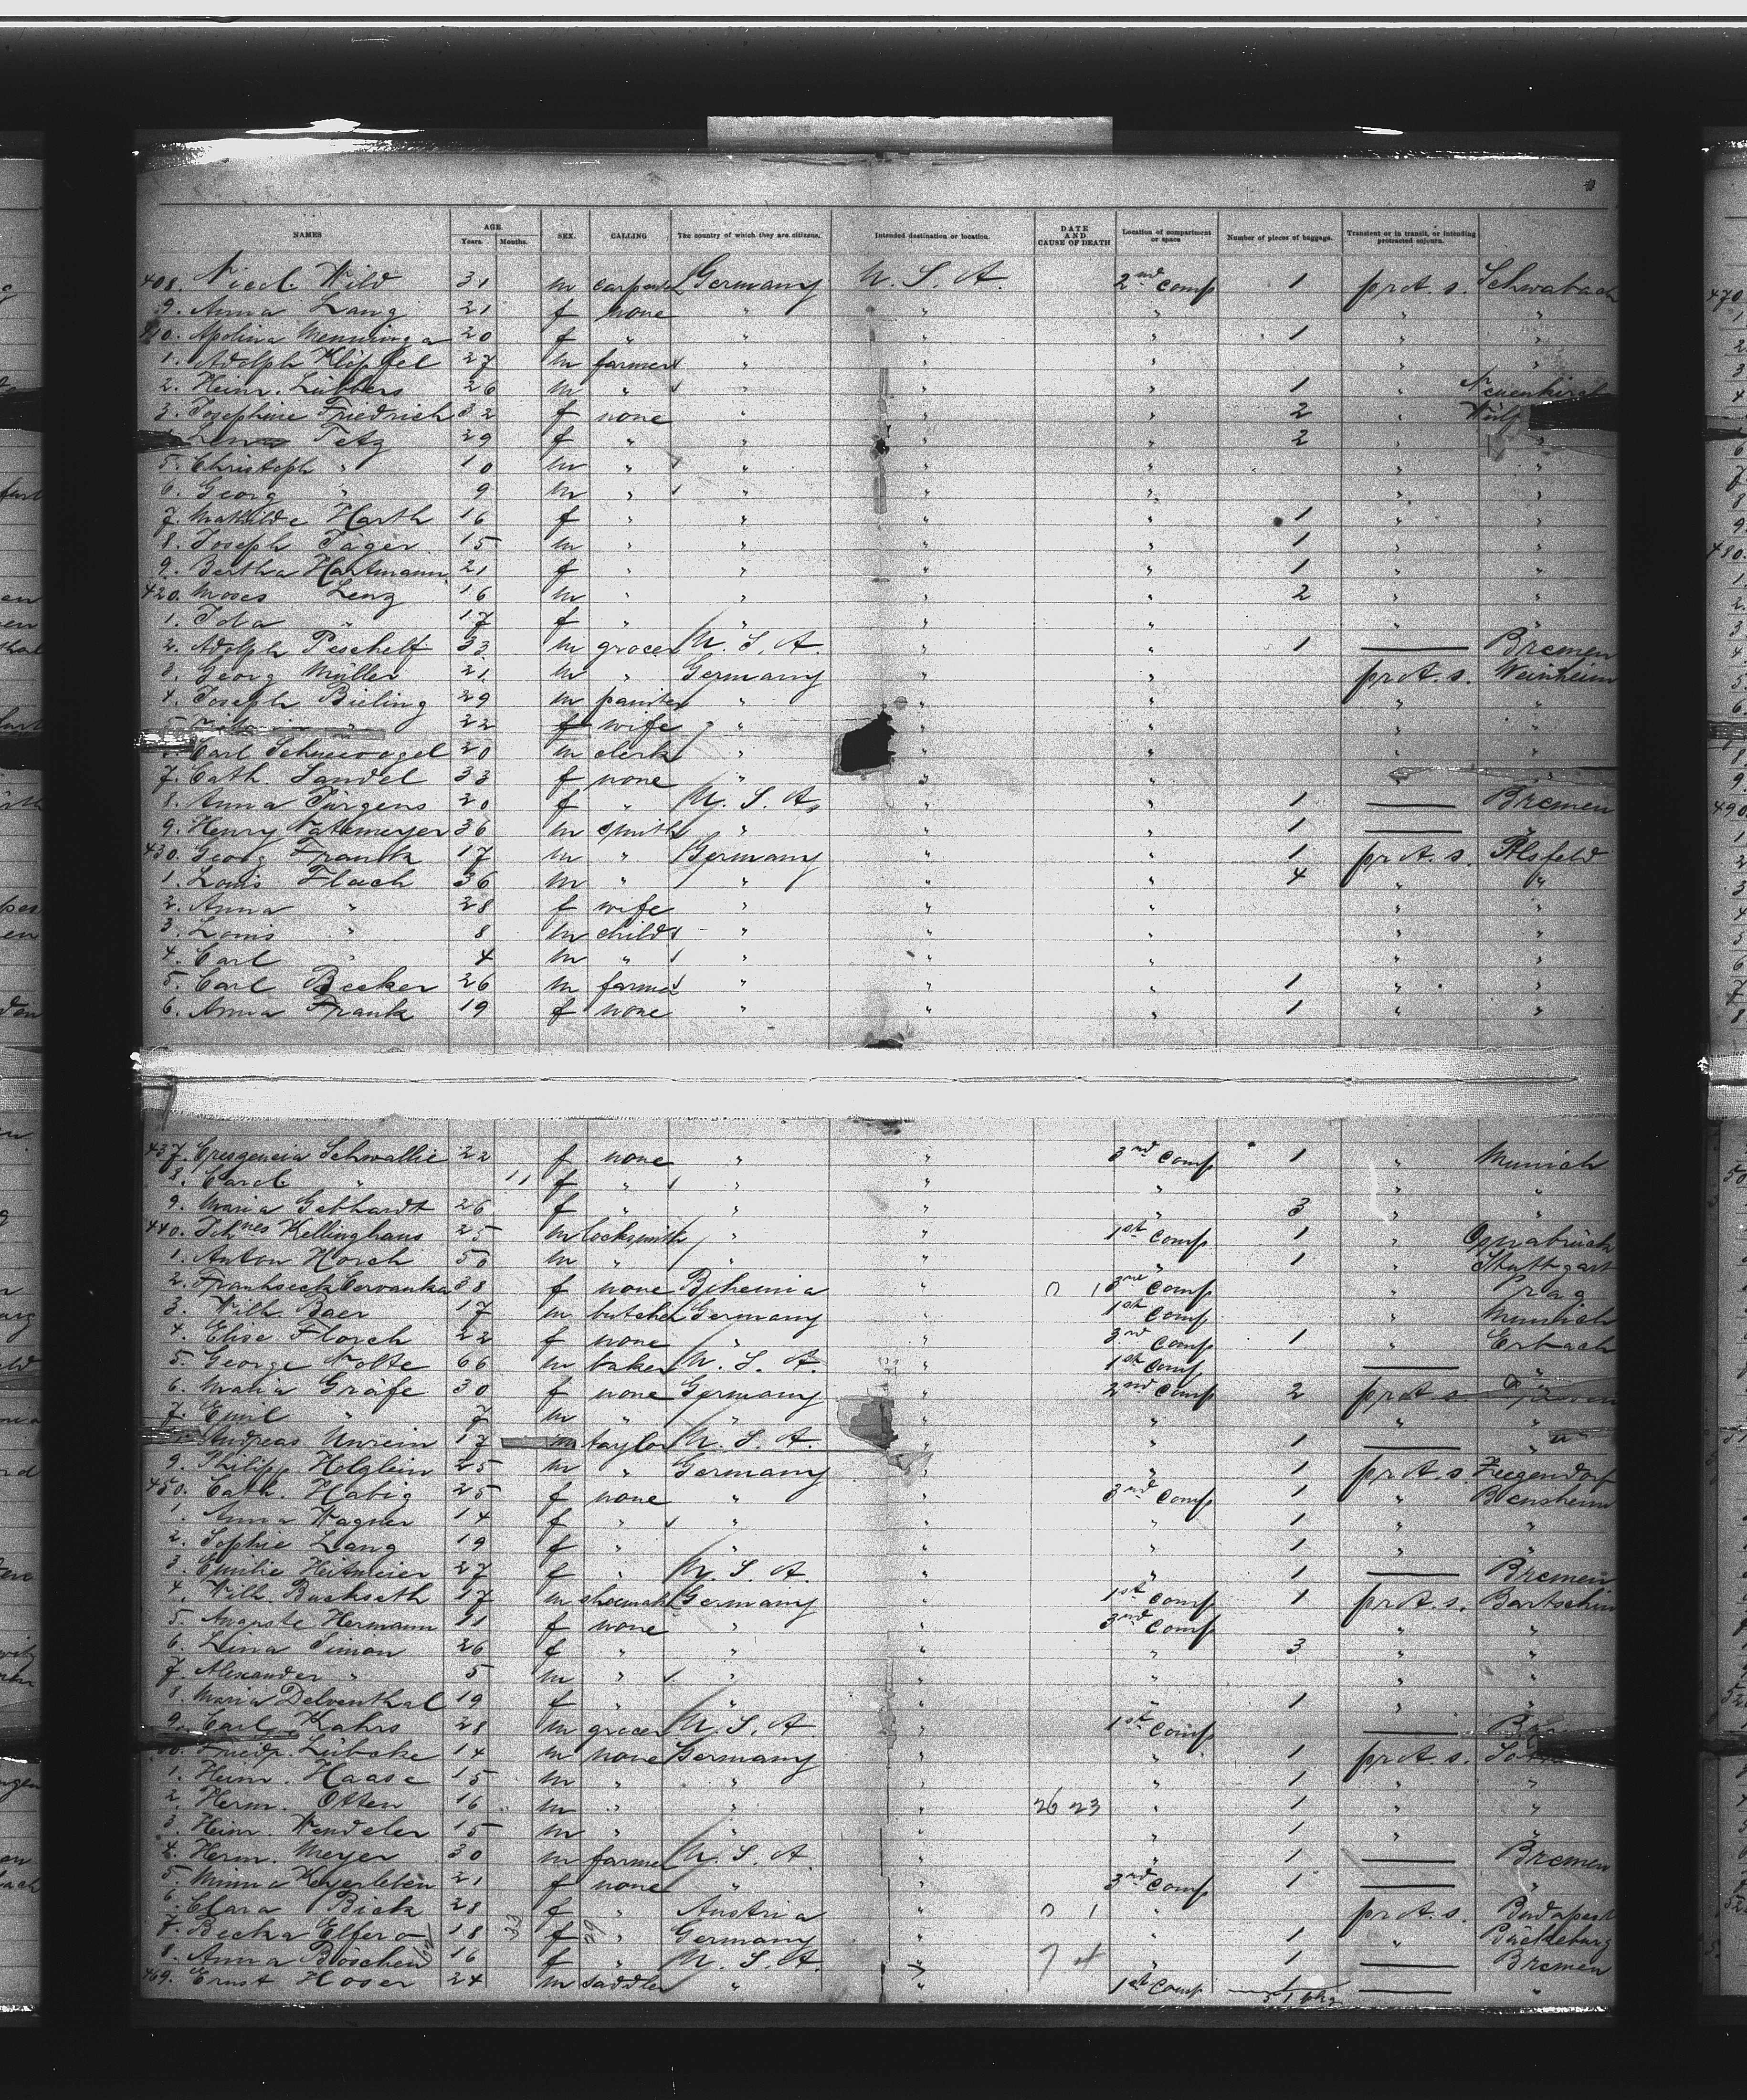 NAMES AGE. Years. Months. SEX. CALLING The country of which they are citizens. Intended destination or location. DATE AND CAUSE OF DEATH Location of compartment or space Number of pieces of baggage. Transient or in transit, or intending protracted sojourn.
408. Nicol. Wild 31 m carpenter Germany U. S. A. 2nd Comp 1 prot. s. Schwabach
9. Anna Lang 21 f none " " " " "
10. Apolina Menninga 20 f " " " " 1 " "
1. Adolph Klöpfel 27 m farmer " " " " "
2. Heinr. Lübbers 26 m " " " " 1 "
3. Josephine Friedrich 32 f none " " " 2 "
Tetz 29 f " " " " 2 " "
5. Christoph " 10 m " " " " " "
6. Georg " 9 m " " " " " "
7. Mathilde Harth 16 f " " " " 1 " "
8. Joseph Jäger 15 m " " " " 1 " "
9. Bertha Hartmann 21 f " " " " 1 " "
420. Moses Lenz 16 m " " " " 2 " "
1. Ida " 17 f " " " " " "
2. Adolph Peschelt 33 m grocer U. S. A. " " 1 — Bremen
3. Georg Müller 21 m " Germany " " prot. s. Weinheim
4. Joseph Bieling 29 m painter " " " " "
5. " 22 f wife " " " "
Carl Schneevogel 20 m clerk " " " "
7. Cath. Sandel 33 f none " " " "
8. Anna Jürgens 20 f " U. S. A. " " 1 — Bremen
9. Henry Natemeyer 36 m smith " " " 1 — "
430. Georg Frank 17 m " Germany " " 1 prot. s. Alsfeld
1. Louis Flach 36 m " " " " 4 " "
2. Anna " 28 f wife " " " " "
3. Louis " 8 m child " " " " "
4. Carl " 4 m " " " " " "
5. Carl Becker 26 m farmer " " " 1 " "
6. Anna Frank 19 f none " " " 1 " "
437. Crescencia Schwallie 22 f none " " 3rd Comp 1 " Munich
8. Carol. " 11 f " " " " " "
9. Maria Gebhardt 26 f " " " " 3 " "
440. Johnes Kellinghaus 25 m locksmith " " 1st Comp 1 " Osnabrück
1. Anton Horch 50 m " " " " 1 " Stuttgart
2. Cervanka 38 f none Bohemia " 0 1 3rd Comp " Prag
3. Wilh. Baer 17 m butcher Germany " 1st Comp " Munich
4. Elise Florch 22 f none " " 3rd Comp 1 " Erbach
5. George Nolte 66 m baker U. S. A. " 1st Comp — "
6. Maria Gräfe 30 f none Germany " 2nd Comp 2 prot. s.
7. Emil " 7 m " " " " " "
Andreas Unrein 17 m taylor U. S. A. " " 1 — "
9. Philipp Holzlein 25 m " Germany " " 1 prot. s.
450. Cath. Habig 25 f none " " 3rd Comp 1 " Bensheim
1. Anna Wagner 14 f " " " " 1 " "
2. Sophie Lang 19 f " " " " 1 " "
3. Emilie Heitmeier 27 f " U. S. A. " " 1 — Bremen
4. Wilh. Buckseth 17 m shoemaker Germany " 1st Comp 1 prot. s. Bartschin
5. Auguste Hermann 11 f none " " 3rd Comp " "
6. Lina Simon 26 f " " " " 3 " "
7. Alexander " 5 m " " " " " "
8. Maria Delventhal 19 f " " " " 1 " "
9. Carl Kahrs 28 m grocer U. S. A. " 1st Comp —
Friedr. Lübcke 14 m none Germany " " 1 prot. s.
1. Heinr. Haase 15 m " " " " 1 " "
2. Herm. Otten 16 m " " " 26 23 " 1 " "
3. Heinr. Wendeler 15 m " " " " 1 " "
4. Herm. Meyer 30 m farmer U. S. A. " " 1 — Bremen
5. Minna Heyerleben 21 f none " " 3rd Comp 1 — "
6. Clara Bick 28 f " Austria " 0 1 " prot. s. Budapest
7. Becka Elfers 18 33 f 29 " Germany " " 1 " Bückeburg
8. Anna Böschen 62 16 f " U. S. A. " 7 4 " 1 — Bremen
469. Ernst Hoser 24 m saddler " " 1st Comp 1 — "